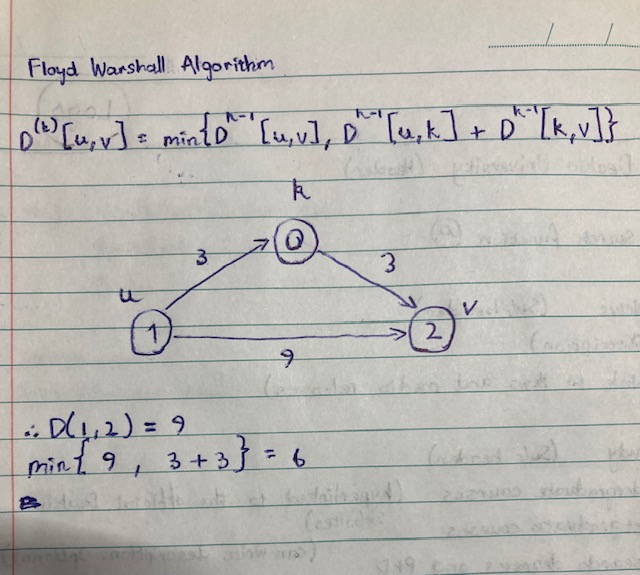 Floyd Warshall Algorithm
D^(k)[u,v] = min{D^k-1[u,v], D^k-1[u,k] + D^k-1[k,v]}
k
0
3
3
u
v
1
2
9
∴ D(1,2) = 9
min{ 9 , 3+3} = 6